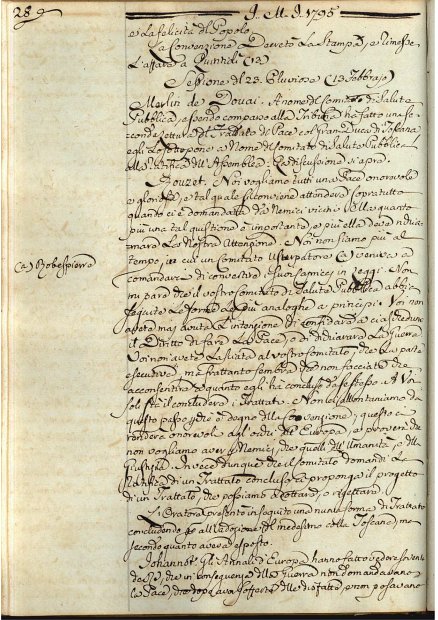 289 I. M. I. 1795
e La felicità del Popolo
La Convenzione Decretò La Stampa, e rimesse
L'affare a Quintidi (13)
Sessione del 25. Piuvioso (13 Febbrajo)
Merlin de Douai. A nome del Comitato di Salute
Pubblica, essendo comparso alla Tribuna ha fatto una se-
conda Lettura del Trattato di Pace col Gran Duca di Toscana
egli Lo sottopone a Nome del Comitato di Salute Pubblica
alla Ratifica dell'Assemblea. La discussione si aprì.
Bouzet. Noi vogliamo tutti una Pace onorevole
e gloriosa, e tal quale si conviene attenderla sopratutto
quando ci è domandata da Nemici vinti. Ma quanto
più una tal questione è importante, e più ella deve richia-
mare La Nostra Attenzione. Noi non siamo più al
tempo, in cui un Comitato Usurpatore (a) veniva a
comandarvi di convertire i suoi capricci in Leggi. Non
mi pare che il vostro Comitato di Salute Pubblica abbia
seguite Le forme Le più analoghe a' principj. Voi non
avete mai avuta L'intenzione di confidare a chi che sia
il Diritto di fare La Pace, o di dichiarare La Guerra
Voi non avete Lasciata al vostro Comitato, che La parte
esecutiva, ma frattanto sembra che non facciate che
acconsentire a quanto egli ha concluso da se stesso. A Voi
soli stà il concludere i Trattati. Non Vi allontaniamo da
questo passo, che è degno della Convenzione; questo ci
renderà onorevoli agli occhi dell'Europa, e proverà che
non vogliamo aver Nemici, che quelli dell'Umanità, e della
Giustizia. Invece dunque che il Comitato domandi La
Ratifica di un Trattato concluso, ci proponga il progetto
di un Trattato, che possiamo adottare, o rigettare.
L'Oratore presentò in seguito una nuova forma di Trattato
concludendo per all'adozione del medesimo colla Toscana, ma
secondo quanto aveva esposto.
Johannot. Gli Annali d'Europa hanno fatto vedere soven-
te, che in conseguenza della Guerra non domandavano
La Pace, che dopo aver sofferte delle disfatte, e non posavano
(a) Robespierre